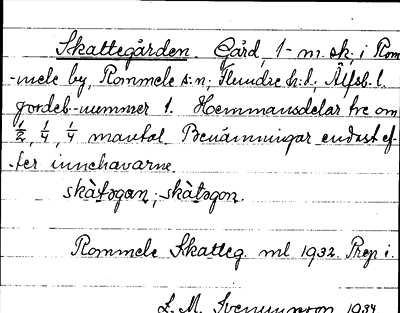 Skattegården. Gård, 1-m. sk; i Rom
-mele by, Rommele s:n; Flundre h:d; Älfsb. l.
Jordeb-nummer 1. Hemmansdelar tre om
½, ¼, ¼ mantal. Benämningar endast ef-
-ter innehavarne.
skàtǝgan; skàtǝgon.
Rommele Skatteg. ml 1932. Prep i.
L. M. Svenungsson 1934